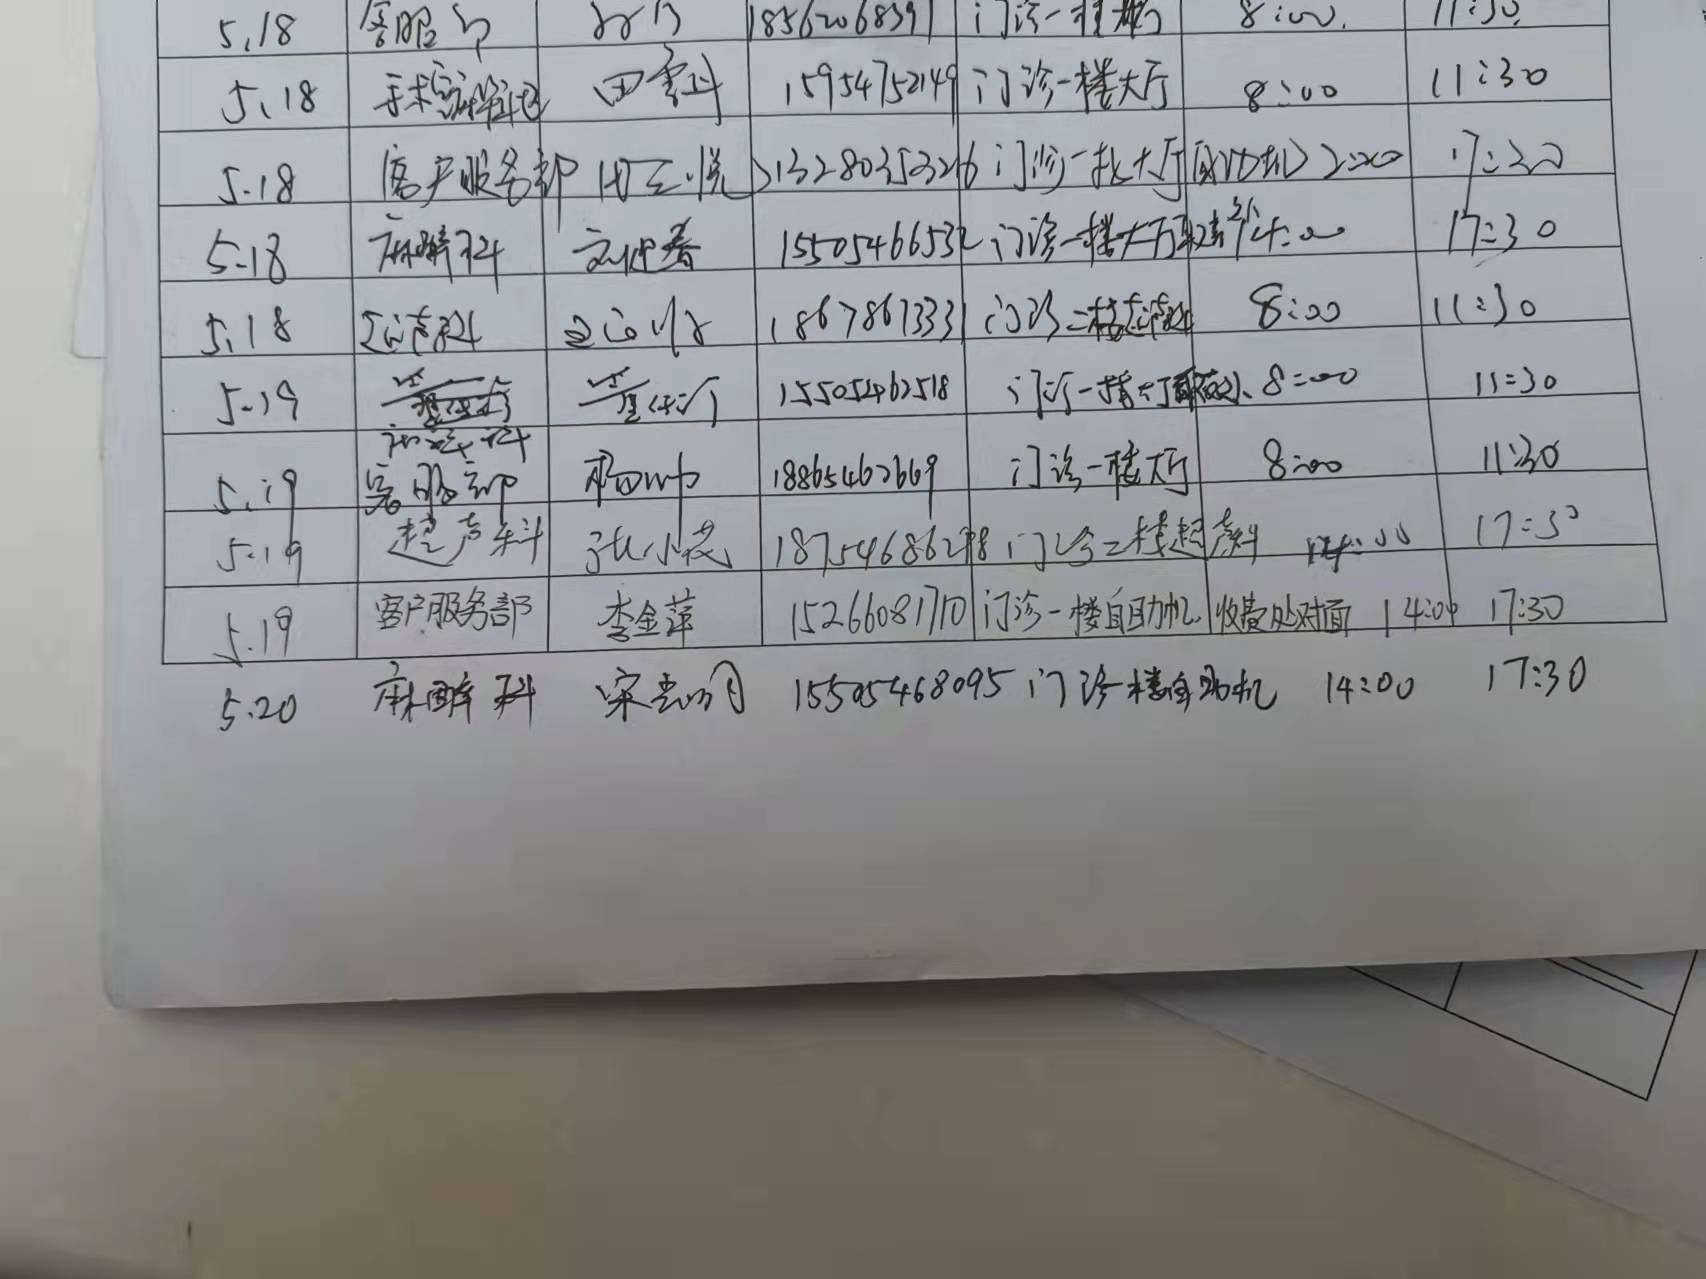 5.18 客服部 18562068391 门诊一楼大厅 8:00. 11:30.
5.18 手术室麻醉科 田雪科 15954752149 门诊一楼大厅 8:00 11:30
5.18 客户服务部 田玉悦 13280352326 门诊一楼大厅 2:00 17:30
5.18 麻醉科 15505466532 门诊一楼大厅 14:00 17:30
5.18 18678673331 门诊二楼 8:00 11:30
5.19 15505462518 门诊一楼大厅 8:00 11:30
5.19 客服部 18865462669 门诊一楼大厅 8:00 11:30
5.19 超声科 张小花 18754686298 门诊二楼超声科 14:00 17:30
5.19 客户服务部 李金萍 15266081710 门诊一楼自助机 收费处对面 14:00 17:30
5.20 麻醉科 15505468095 门诊楼自助机 14:00 17:30